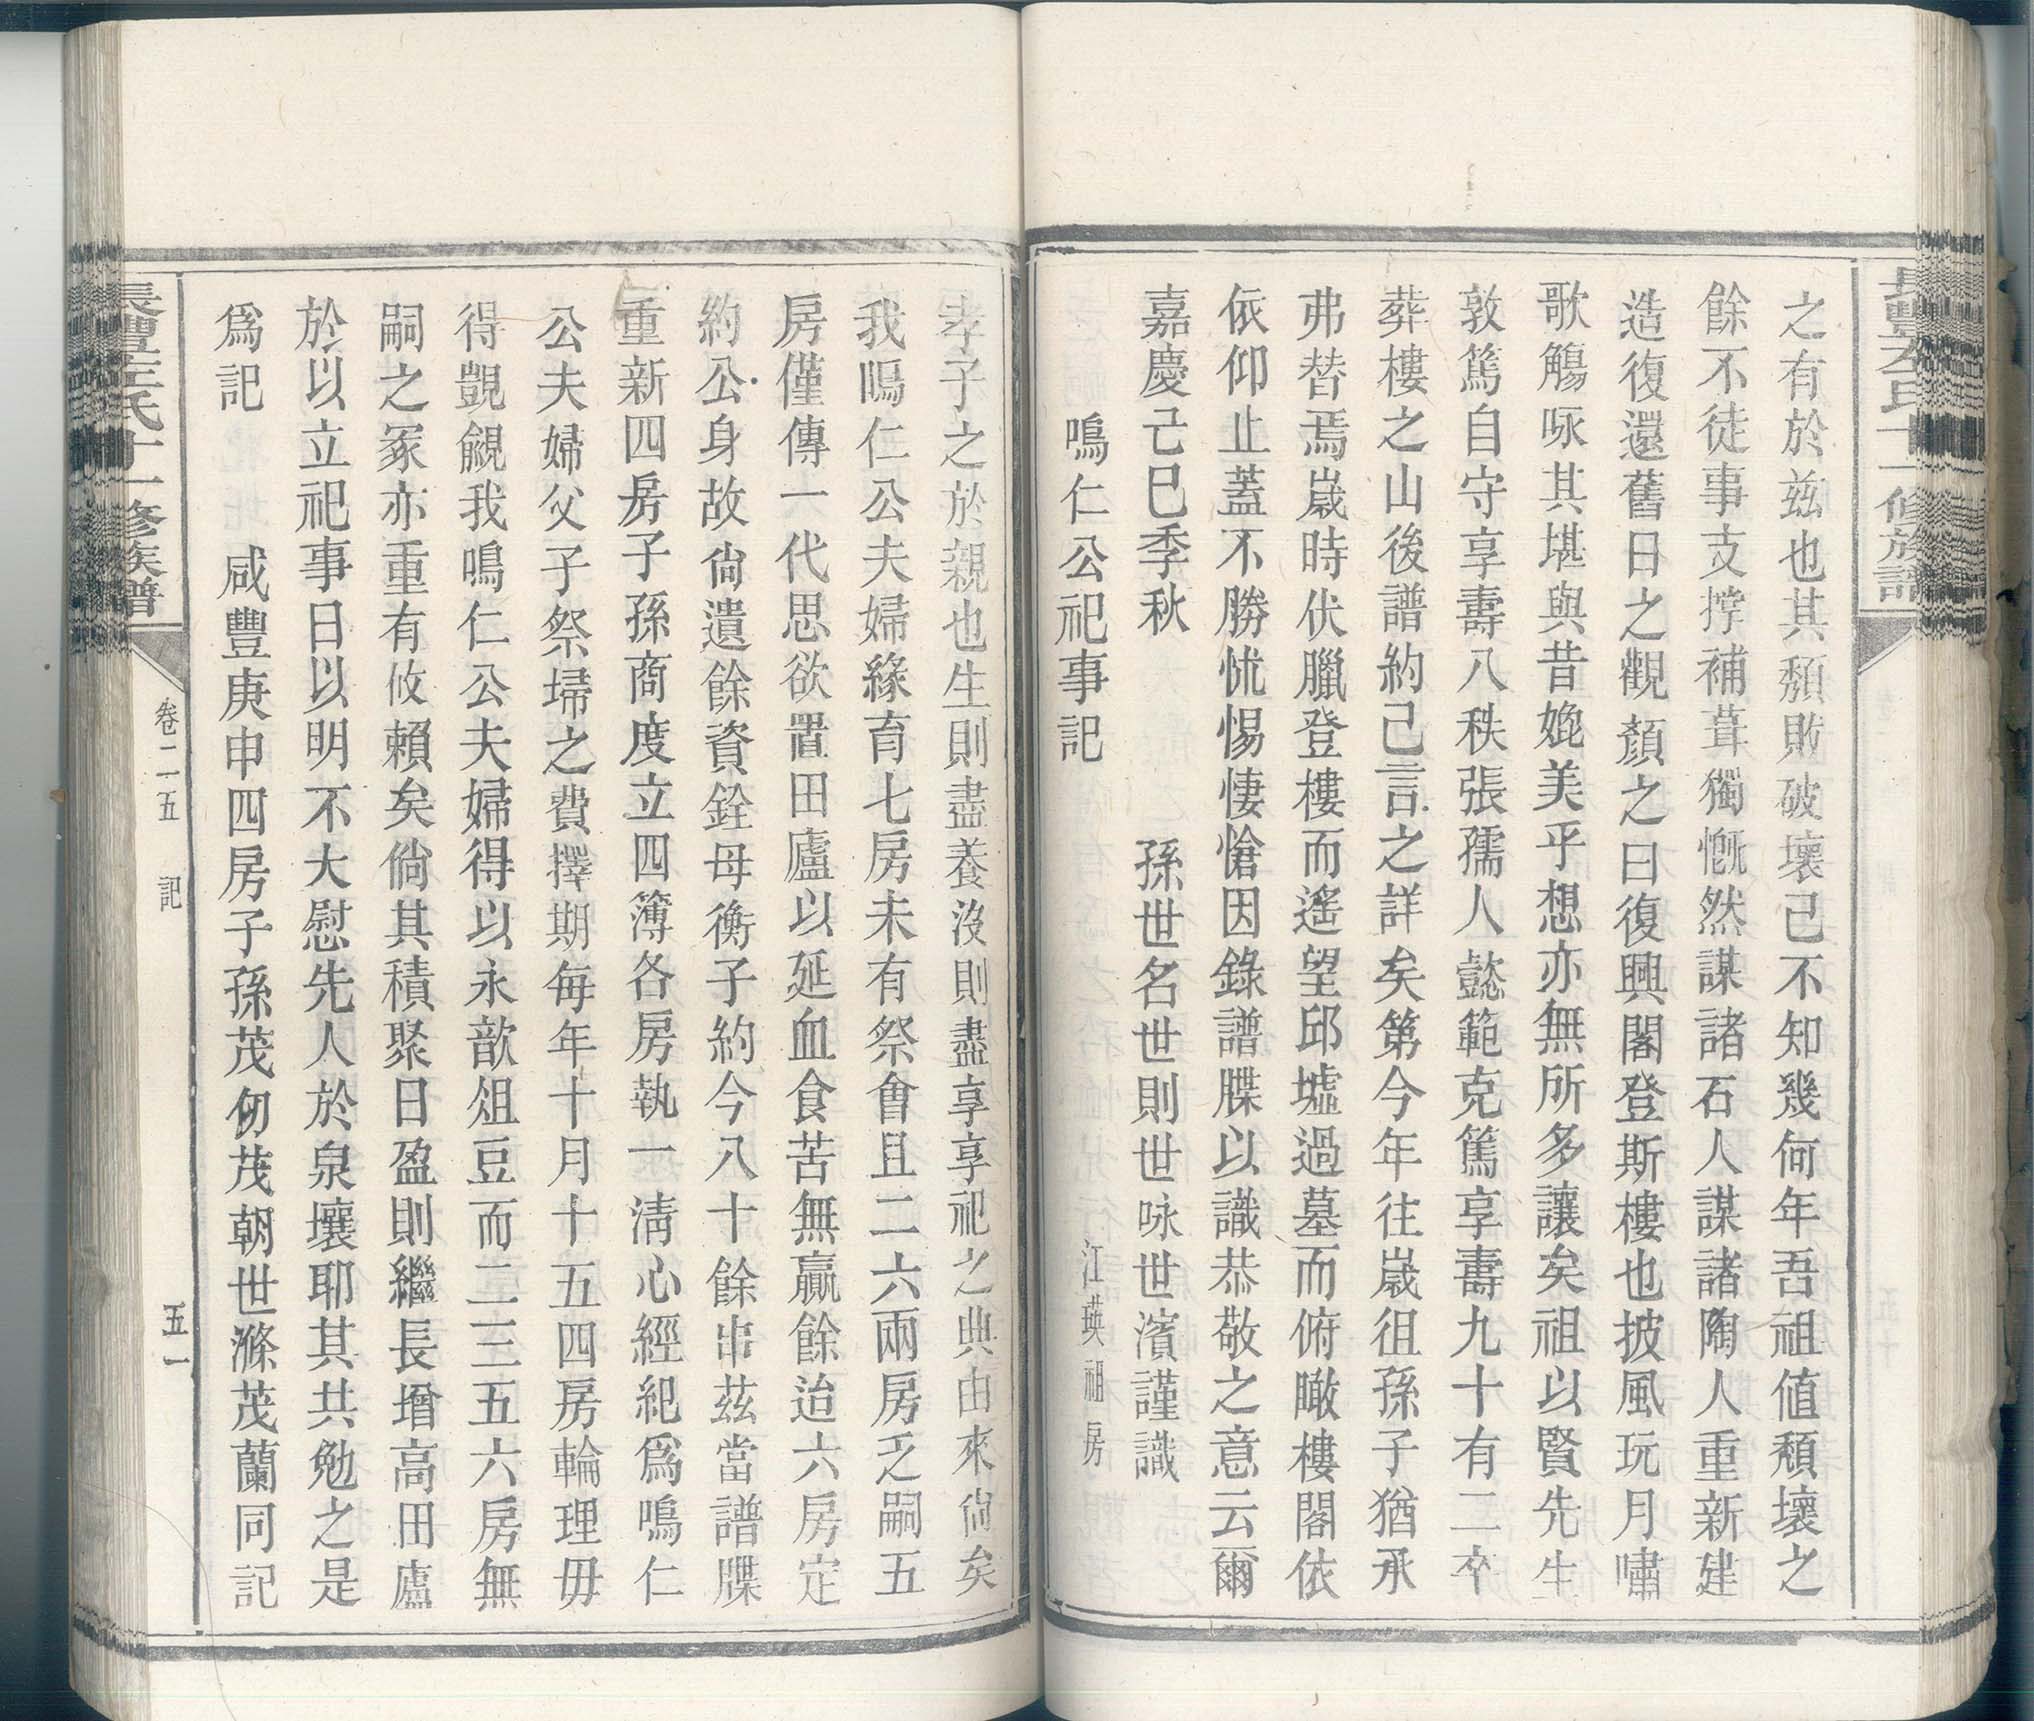 之有於茲也其頹敗破壞已不知幾何年吾祖值頹壞之
餘不徒事支撑補葺獨慨然謀諸石人謀諸陶人重新建
造復還舊日之觀顏之曰復興閣登斯樓也披風玩月嘯
歌觴咏其堪與昔媲美乎想亦無所多讓矣祖以賢先生
敦篤自守享壽八秩張孺人懿範克篤享壽九十有二卒
葬樓之山後譜約已言之詳矣第今年往歲徂孫子猶承
弗替焉歲時伏臘登樓而遙望邱墟過墓而俯瞰樓閣依
依仰止蓋不勝怵惕悽愴因錄譜牒以識恭敬之意云爾
嘉慶己巳季秋 孫世名世則世咏世濱謹識
鳴仁公祀事記 江英祖房
孝子之於親也生則盡養沒則盡享享祀之典由來尙矣
我鳴仁公夫婦緣育七房未有祭會且二六兩房乏嗣五
房僅傳一代思欲置田廬以延血食苦無贏餘迨六房定
約公身故尙遺餘資銓母衡子約今八十餘串茲當譜牒
重新四房子孫商度立四簿各房執一淸心經紀爲鳴仁
公夫婦父子祭埽之費擇期每年十月十五四房輪理毋
得覬覦我鳴仁公夫婦得以永歆俎豆而二三五六房無
嗣之冢亦重有攸賴矣倘其積聚日盈則繼長增高田廬
於以立祀事日以明不大慰先人於泉壤耶其共勉之是
爲記
咸豐庚申四房子孫茂仞茂朝世滌茂蘭同記
長豐左氏十一修族譜
卷二五 記
五一